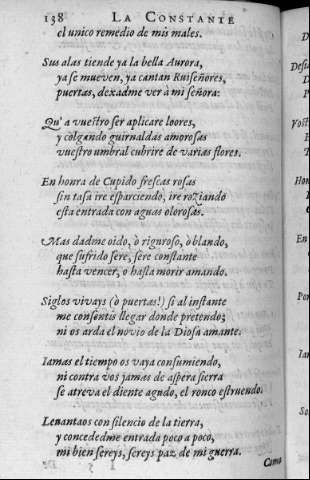 138 LA CONSTANTE
el unico remedio de mis males.
Sus alas tiende ya la bella Aurora,
ya se mueven, ya cantan Ruiseñores,
puertas, dexadme ver à mi señora:
Qu' a vuestro ser aplicare loores,
y colgando guirnaldas amorosas
vuestro umbral cubrire de varias flores.
En honra de Cupido frescas rosas
sin tasa ire esparciendo, ire roziando
esta entrada con aguas olorosas.
Mas dadme oido, ò riguroso, ò blando,
que sufrido sere, sere constante
hasta vencer, o hasta morir amando.
Siglos vivays (ò puertas!) si al instante
me consentis llegar donde pretendo;
ni os arda el novio de la Diosa amante.
Iamas el tiempo os vaya consumiendo,
ni contra vos jamas de aspera sierra
se atreva el diente agudo, el ronco estruendo.
Levantaos con silencio de la tierra,
y concededme entrada poco a poco,
mi bien sereys, sereys paz de mi guerra.
Como